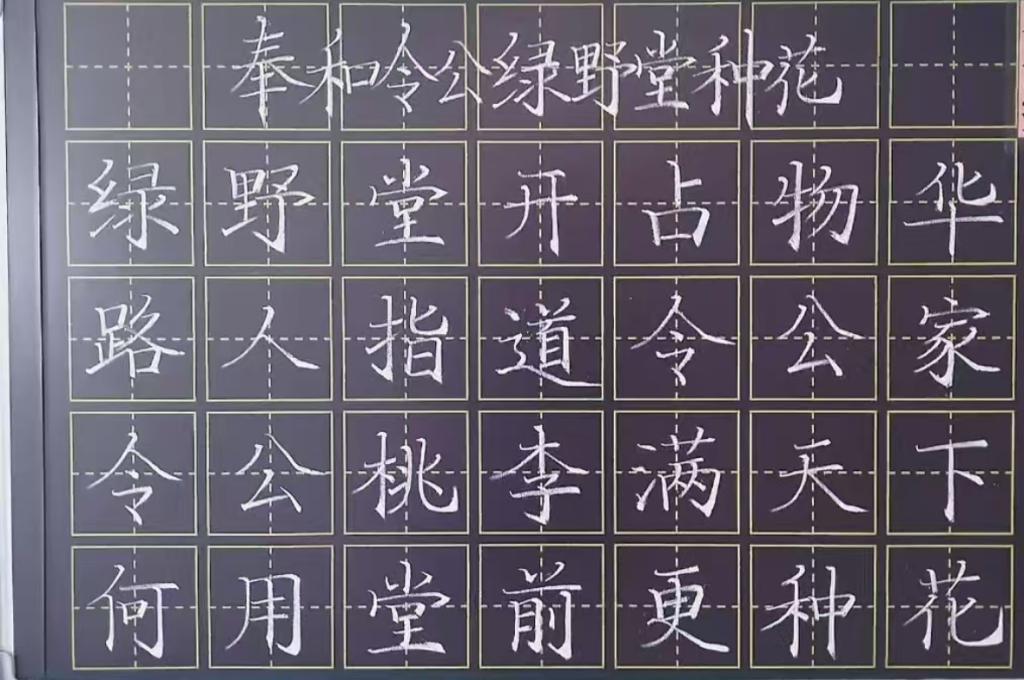 奉和令公绿野堂种花
绿野堂开占物华
路人指道令公家
令公桃李满天下
何用堂前更种花